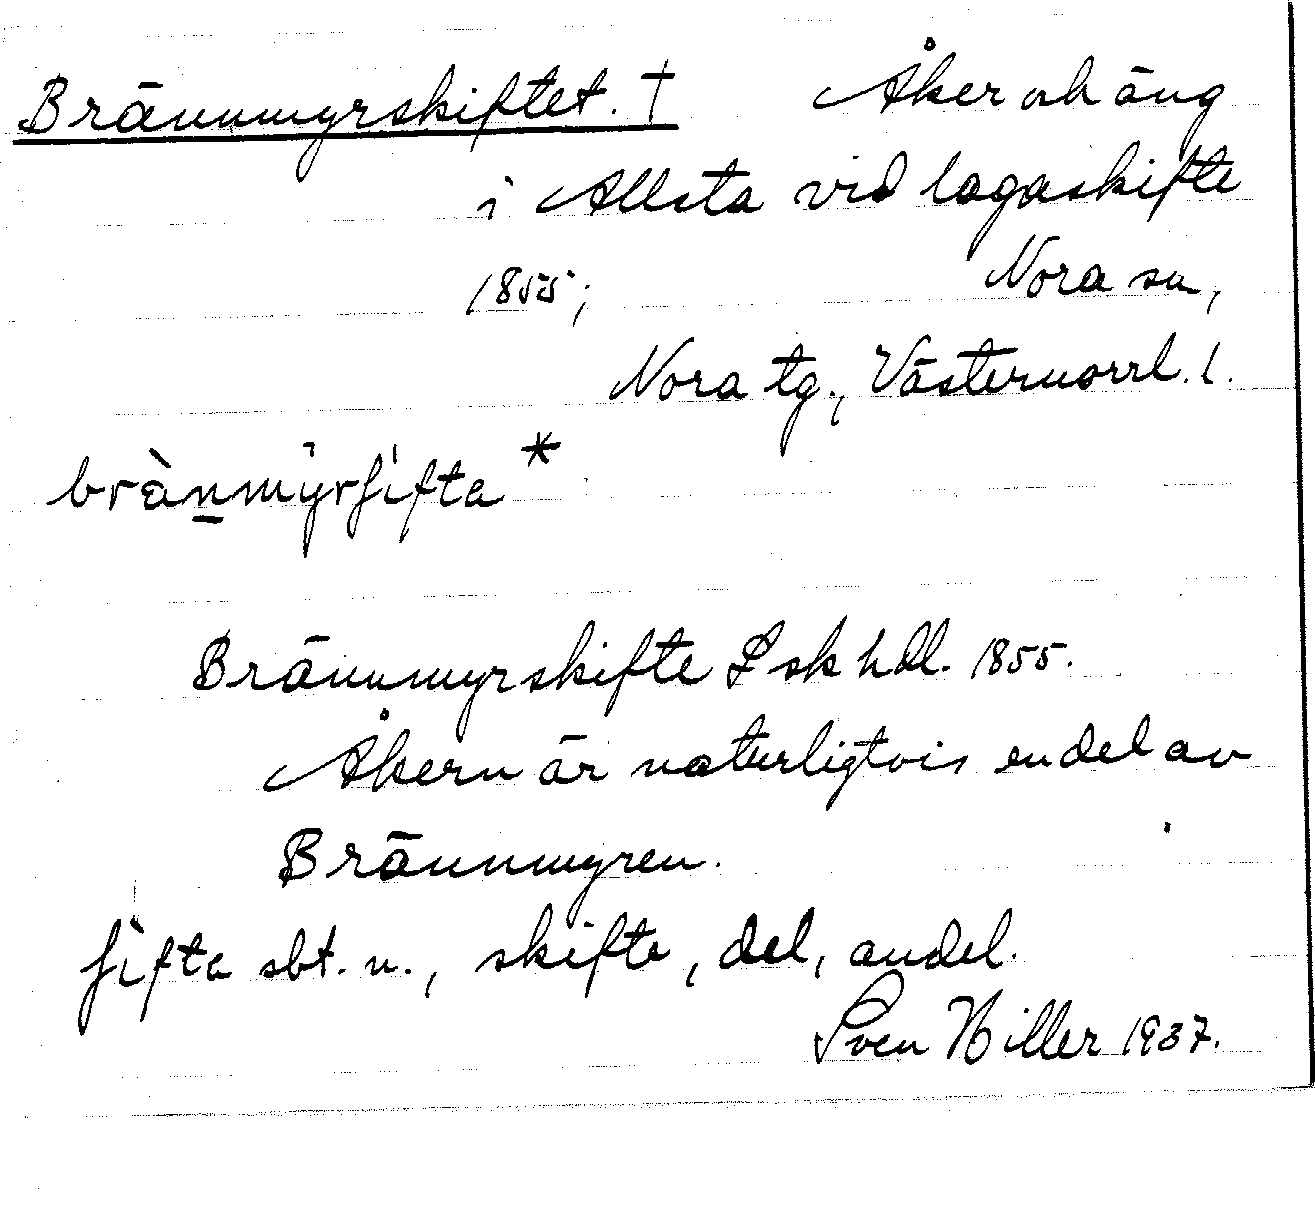 Brännmyrskiftet. † Åker och äng
i Allsta vid lagaskifte
1855; Nora sn,
Nora tg., Västernorrl. l.
brànmýrʃifta *
Brännmyrskifte Lskhdl. 1855.
Åkern är naturligtvis en del av
Brännmyren.
ʃìfta sbt. n., skifte, del, andel.
Sven Hiller 1937.